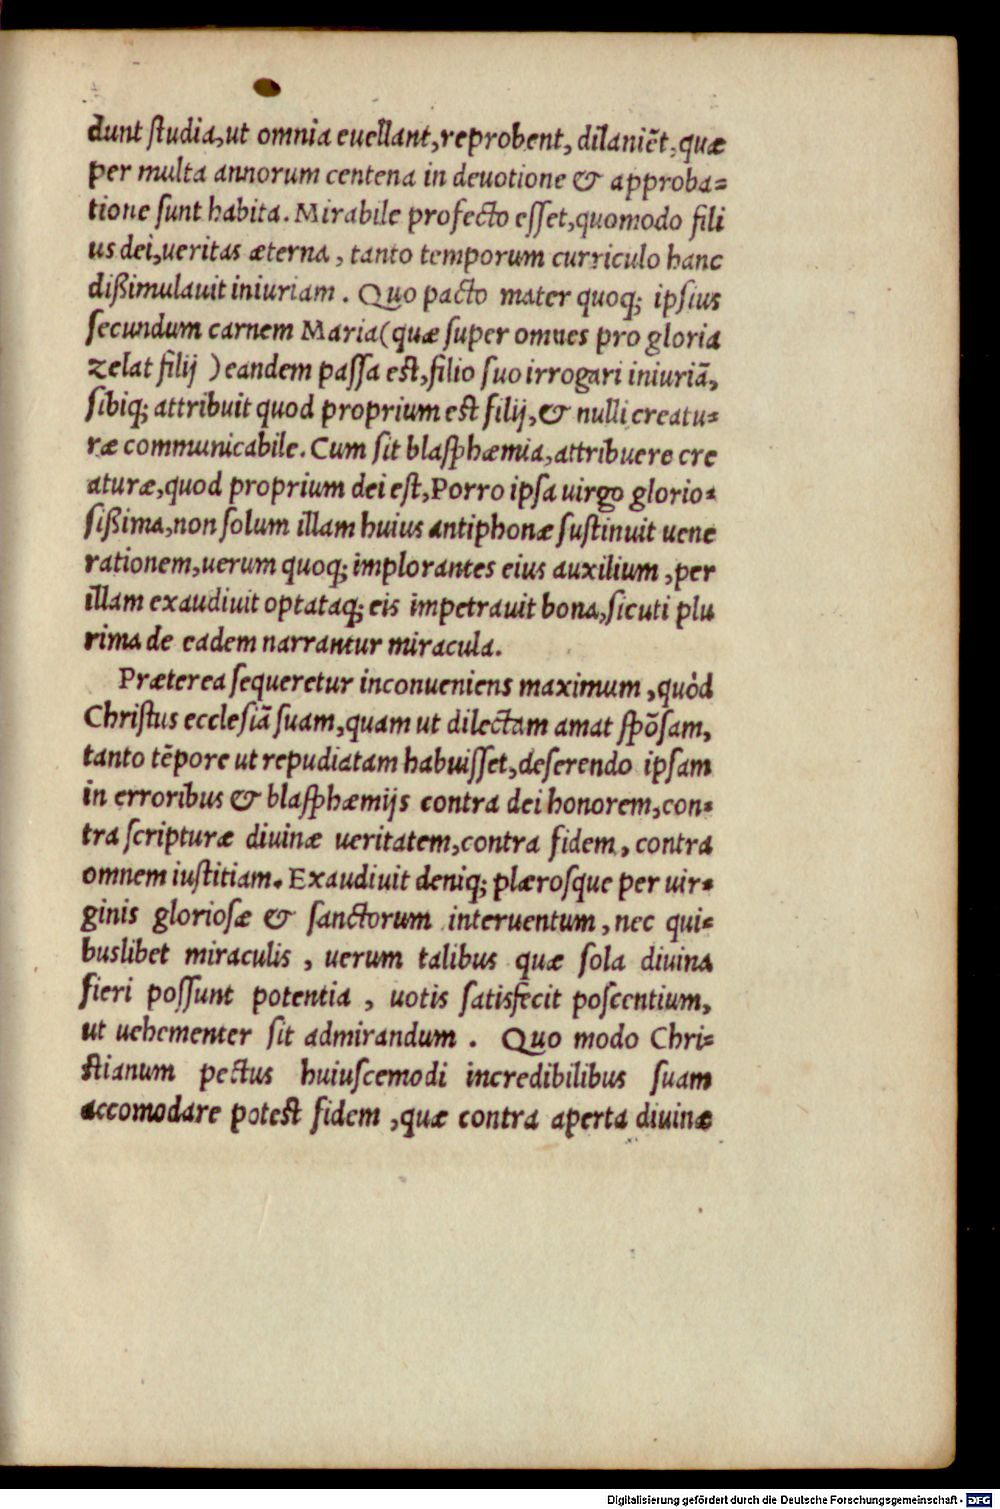 dunt ſtudia, ut omnia euellant, reprobent, dilaniẽt, quæ
per multa annorum centena in deuotione & approba=
tione ſunt habita. Mirabile profecto eſſet, quomodo fili
us dei, ueritas æterna, tanto temporum curriculo hanc
dißimulauit iniuriam. Quo pacto mater quoq; ipſius
ſecundum carnem Maria (quæ ſuper omnes pro gloria
zelat filij ) eandem paſſa eſt, filio ſuo irrogari iniuriã,
ſibiq; attribuit quod proprium eſt filij, & nulli creatu=
ræ communicabile. Cum ſit blaſphæmia, attribuere cre
aturæ, quod proprium dei eſt, Porro ipſa uirgo glorio=
ſißima, non ſolum illam huius antiphonæ ſuſtinuit uene
rationem, uerum quoq; implorantes eius auxilium, per
illam exaudiuit optataq; eis impetrauit bona, ſicuti plu
rima de eadem narrantur miracula.
Præterea ſequeretur inconueniens maximum, quòd
Chriſtus eccleſiã ſuam, quam ut dilectam amat ſpõſam,
tanto tẽpore ut repudiatam habuiſſet, deſerendo ipſam
in erroribus & blaſphæmijs contra dei honorem, con=
tra ſcripturæ diuinæ ueritatem, contra fidem, contra
omnem iuſtitiam. Exaudiuit deniq; plæroſque per uir=
ginis glorioſæ & ſanctorum interuentum, nec qui=
buslibet miraculis, uerum talibus quæ ſola diuina
fieri poſſunt potentia, uotis ſatisfecit poſcentium,
ut uehementer ſit admirandum. Quo modo Chri=
ſtianum pectus huiuſcemodi incredibilibus ſuam
accomodare poteſt fidem, quæ contra aperta diuinæ
Digitalisierung gefördert durch die Deutsche Forschungsgemeinschaft - DFG